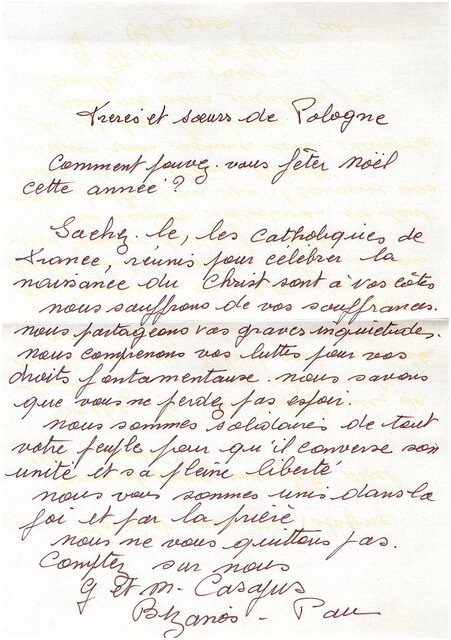 Freres et sœurs de Pologne
Comment pouvez-vous fêter noël
cette année ?
Sachez-le, les catholiques de
France, réunis pour célébrer la
naissance du Christ sont à vos côtés
nous souffrons de vos souffrances.
nous partageons vos graves inquietudes.
nous comprenons vos luttes pour vos
droits fontamentause. nous savons
que vous ne perdez pas espoir.
nous sommes solidaires de tout
votre peuple pour qu'il converse son
unité et sa pleine liberté
nous vous sommes unis dans la
foi et par la prière
nous ne vous quittons pas.
Comptez sur nous
G et M. Casajus
Bizanos - Pau